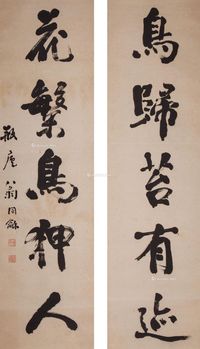 鳥歸苔有迹
花繁鳥狎人
瓶廬 翁同龢